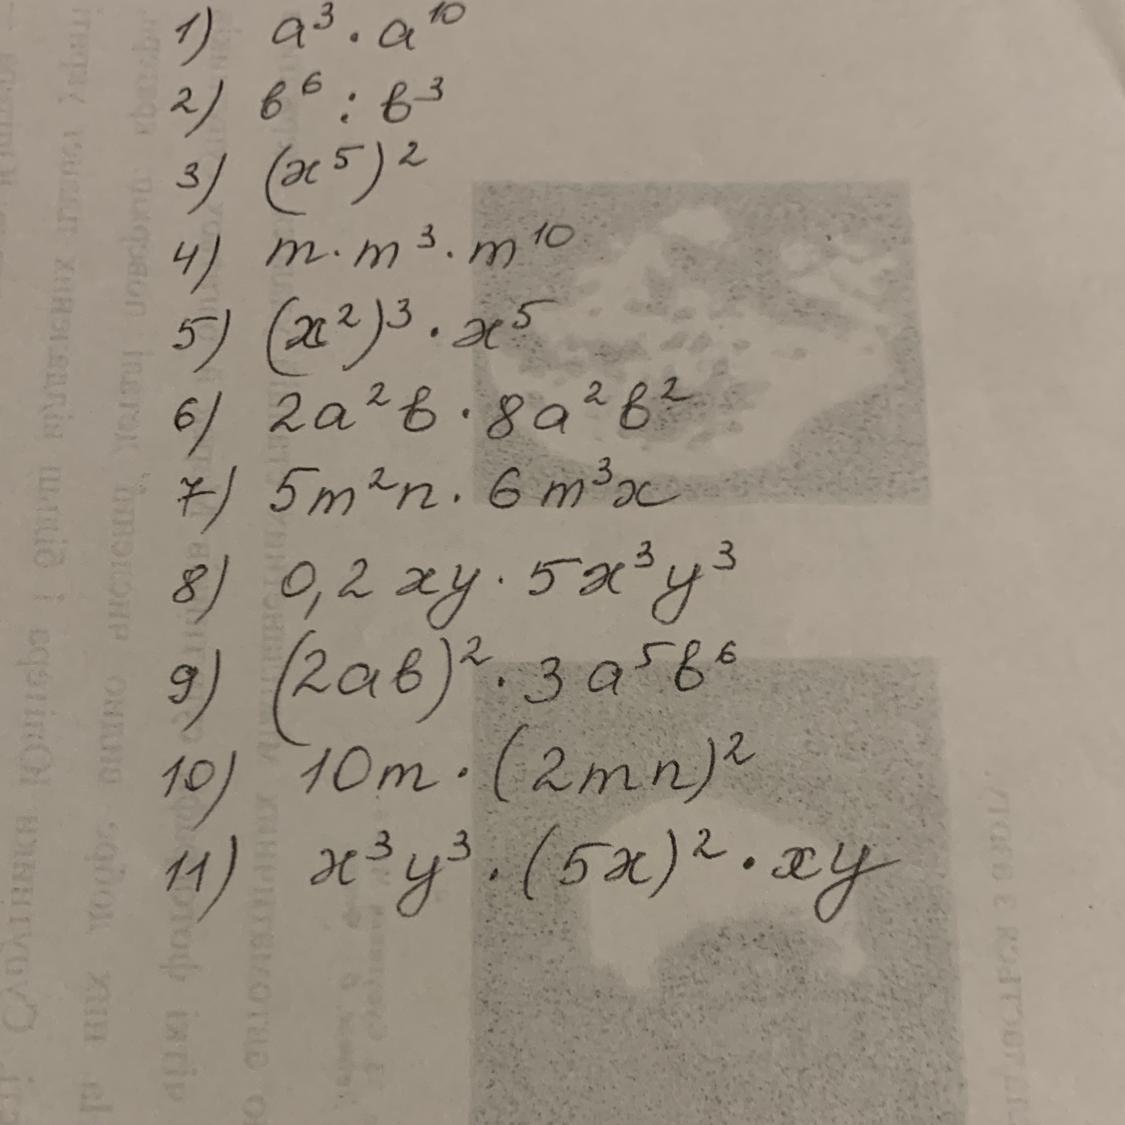 1) a³ · a¹⁰
2) b⁶ : b³
3) (x⁵)²
4) m · m³ · m¹⁰
5) (x²)³ · x⁵
6) 2a²b · 8a²b²
7) 5m²n · 6m³x
8) 0,2 xy · 5x³y³
9) (2ab)² · 3a⁵b⁶
10) 10m · (2mn)²
11) x³y³ · (5x)² · xy